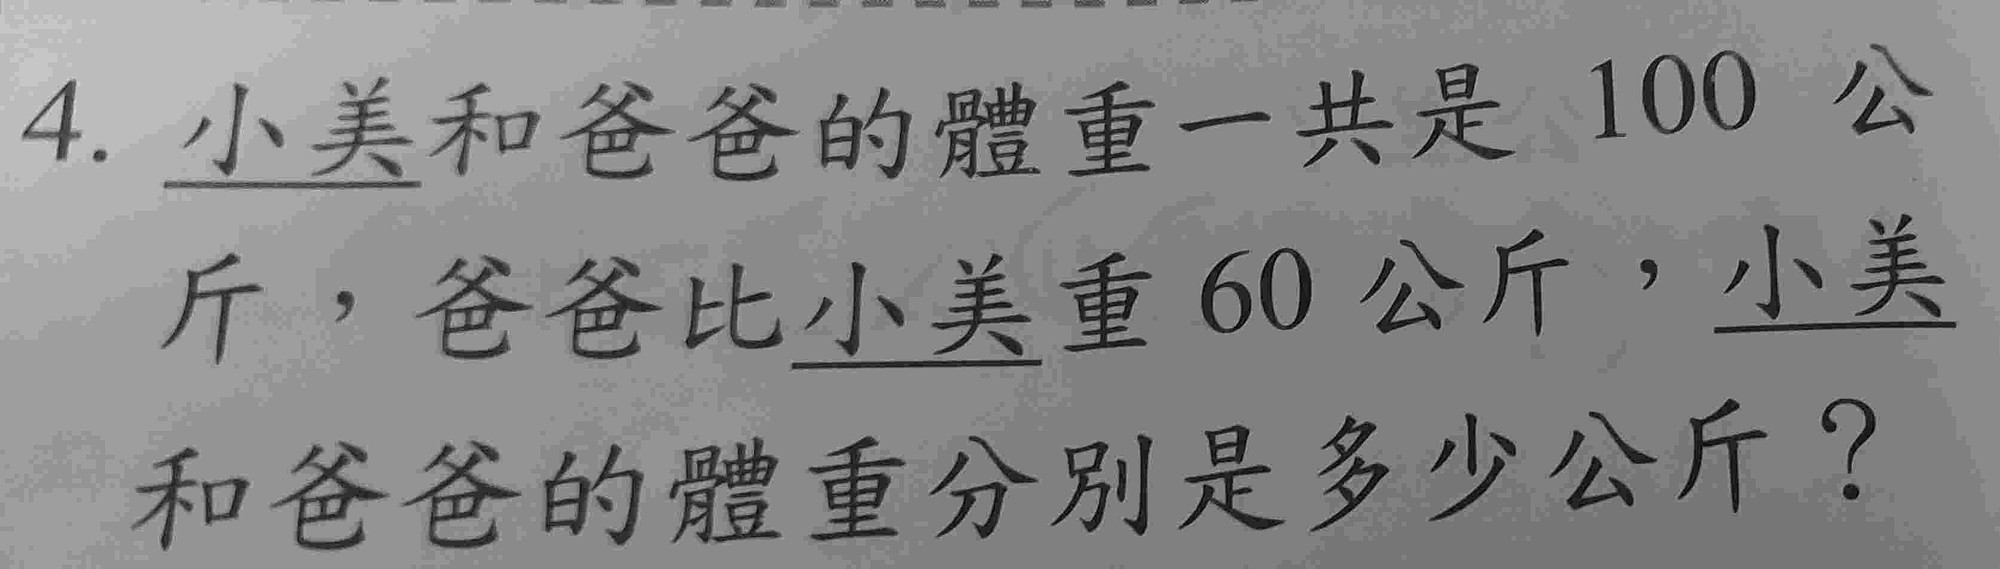 4. 小美和爸爸的體重一共是 100 公
斤，爸爸比小美重 60 公斤，小美
和爸爸的體重分別是多少公斤？